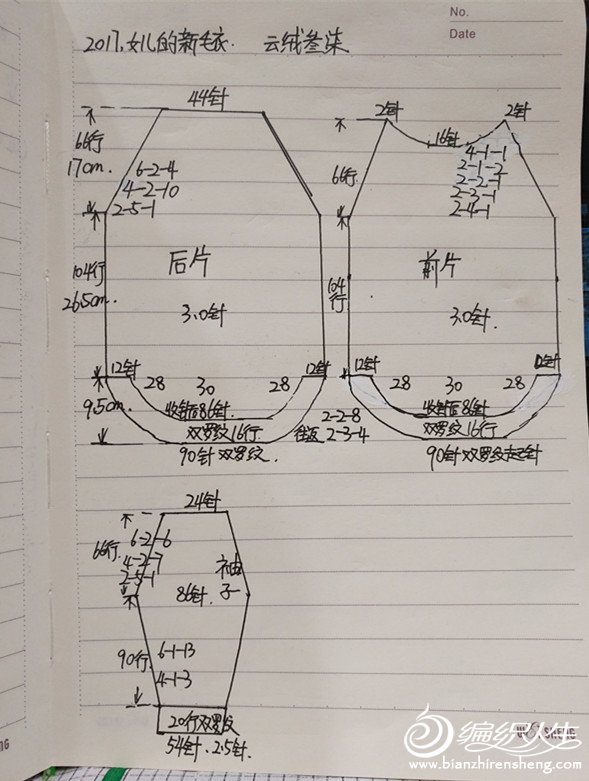 No.
Date
2017.女儿的新毛衣. 云绒叁柒
44针
66行
17cm.
6-2-4
4-2-10
2-5-1
104行
26.5cm.
后片
3.0针
12针
12针
28
30
28
9.5cm.
收针后86针.
双罗纹16行.
90针双罗纹.
往返
2-2-8
2-3-4
2针
2针
16针
66行
4-1-1
2-1-2
2-2-1
2-4-1
104行
前片
3.0针
12针
12针
28
30
28
收针后86针
双罗纹16行
90针双罗纹起针
24针
66行
6-2-6
4-2-7
2-5-1
袖子
86针.
90行
6-1-13
4-1-3
20行双罗纹
54针.2.5针
编织人生
www.bianzhirensheng.com
SHENG
16